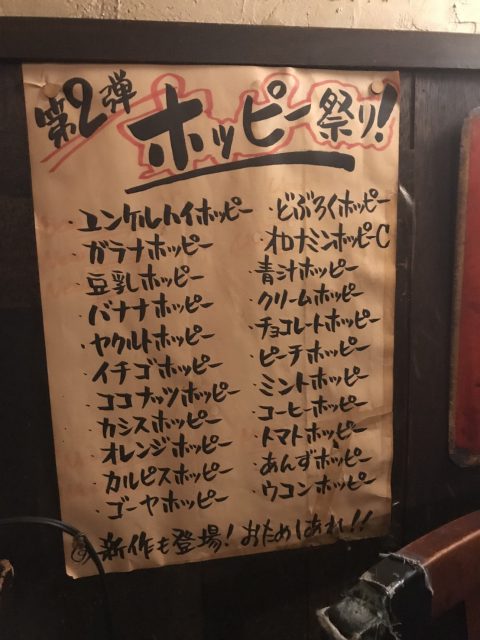 第2弾 ホッピー祭り!
・ユンケルハイホッピー
・ガラナホッピー
・豆乳ホッピー
・バナナホッピー
・ヤクルトホッピー
・イチゴホッピー
・ココナッツホッピー
・カシスホッピー
・オレンジホッピー
・カルピスホッピー
・ゴーヤホッピー
・どぶろくホッピー
・オロナミンホッピーC
・青汁ホッピー
・クリームホッピー
・チョコレートホッピー
・ピーチホッピー
・ミントホッピー
・コーヒーホッピー
・トマトホッピー
・あんずホッピー
・ウコンホッピー
新作も登場! おためしあれ!!